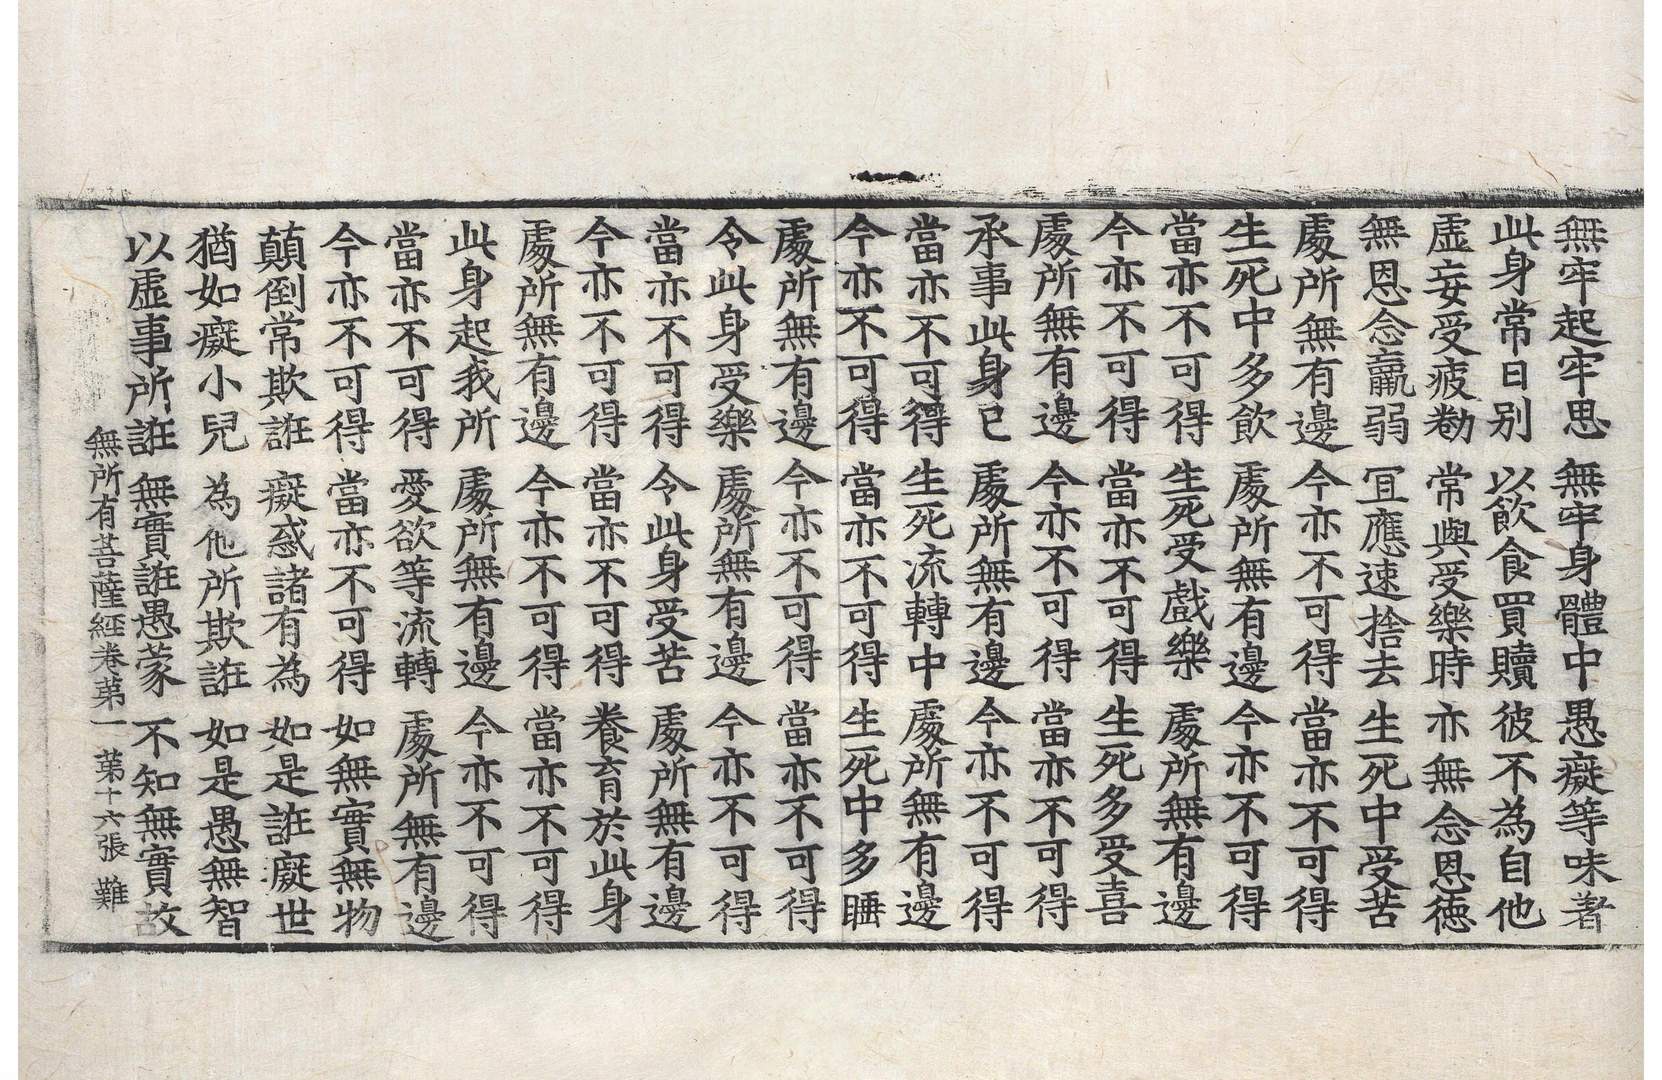 無牢起牢思　無牢身體中　愚癡等味著
此身常日別　以飲食買贖　彼不為自他
虛妄受疲勌　常與受樂時　亦無念恩德
無恩念羸弱　冝應速捨去　生死中受苦
處所無有邊　今亦不可得　當亦不可得
生死中多飲　處所無有邊　今亦不可得
當亦不可得　生死受戲樂　處所無有邊
今亦不可得　當亦不可得　生死多受喜
處所無有邊　今亦不可得　當亦不可得
承事此身已　處所無有邊　今亦不可得
當亦不可得　生死流轉中　處所無有邊
今亦不可得　當亦不可得　生死中多睡
處所無有邊　今亦不可得　當亦不可得
令此身受樂　處所無有邊　今亦不可得
當亦不可得　令此身受苦　處所無有邊
今亦不可得　當亦不可得　養育於此身
處所無有邊　今亦不可得　當亦不可得
此身起我所　處所無有邊　今亦不可得
當亦不可得　愛欲等流轉　處所無有邊
今亦不可得　當亦不可得　如無實無物
顛倒常欺誑　癡惑諸有為　如是誑癡世
猶如癡小兒　為他所欺誑　如是愚無智
以虛事所誑　無實誑愚蒙　不知無實故
無所有菩薩經卷第一　第十六張　難